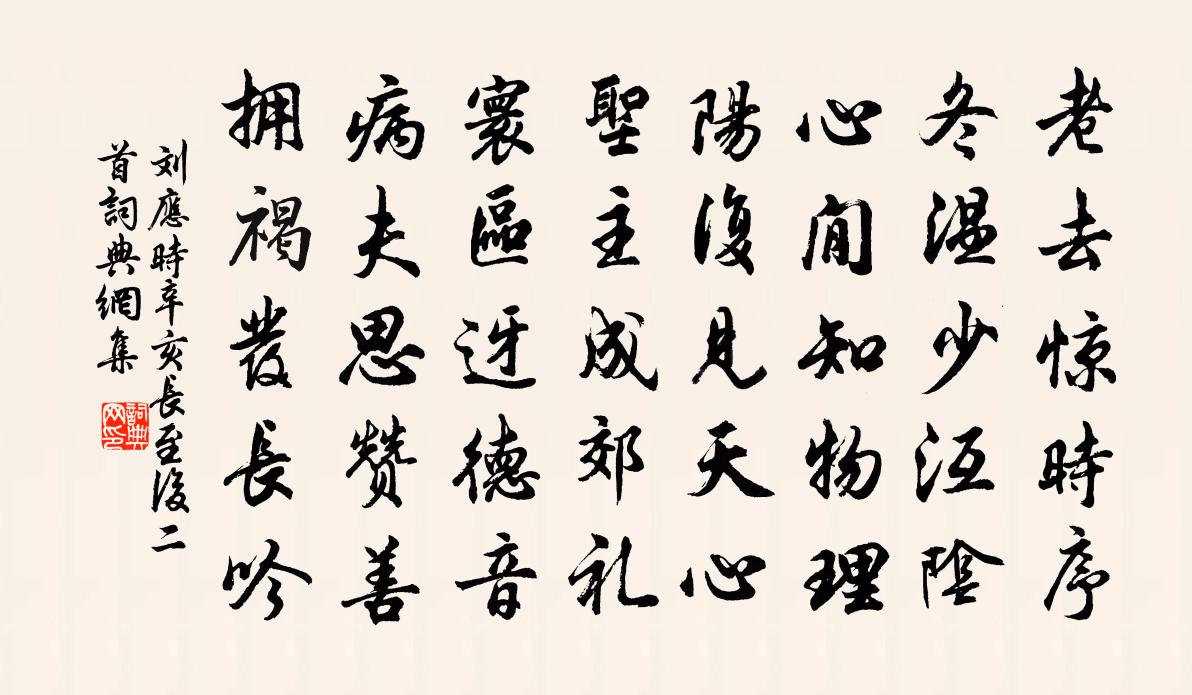 老去惊時序
冬温少沍陰
心閒知物理
陽復見天心
聖主成郊礼
寰區迓德音
病夫思赞善
拥褐發長吟
刘應時辛亥長至後二
首詞典網集
詞典
网印